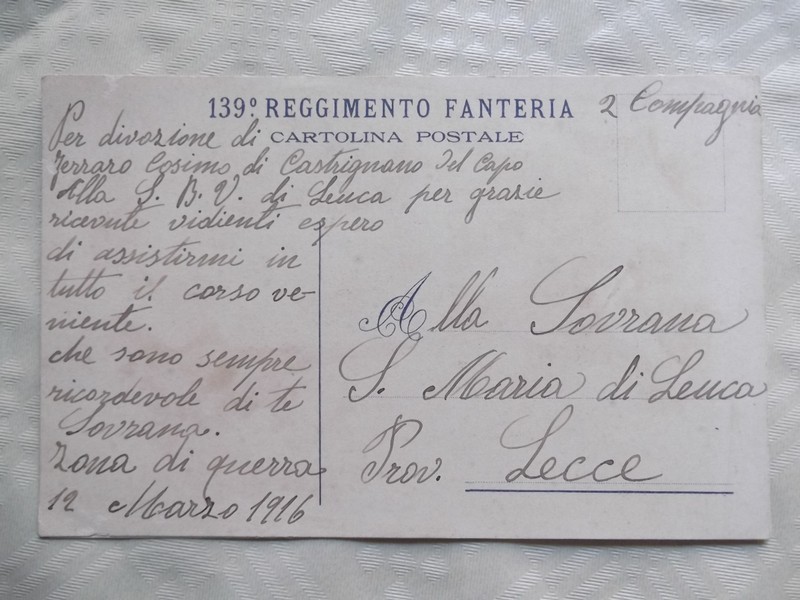 139º REGGIMENTO FANTERIA
CARTOLINA POSTALE
2 Compagnia
Per divozione di
Ferraro Cosimo di Castrignano Del Capo
Alla S. B. V. di Leuca per grazie
ricevute vidienti espero
di assistirmi in
tutto il corso ve-
niente.
che sono sempre
ricordevole di te
Sovrana.
Zona di guerra
12 Marzo 1916
Alla Sovrana
S. Maria di Leuca
Prov. Lecce